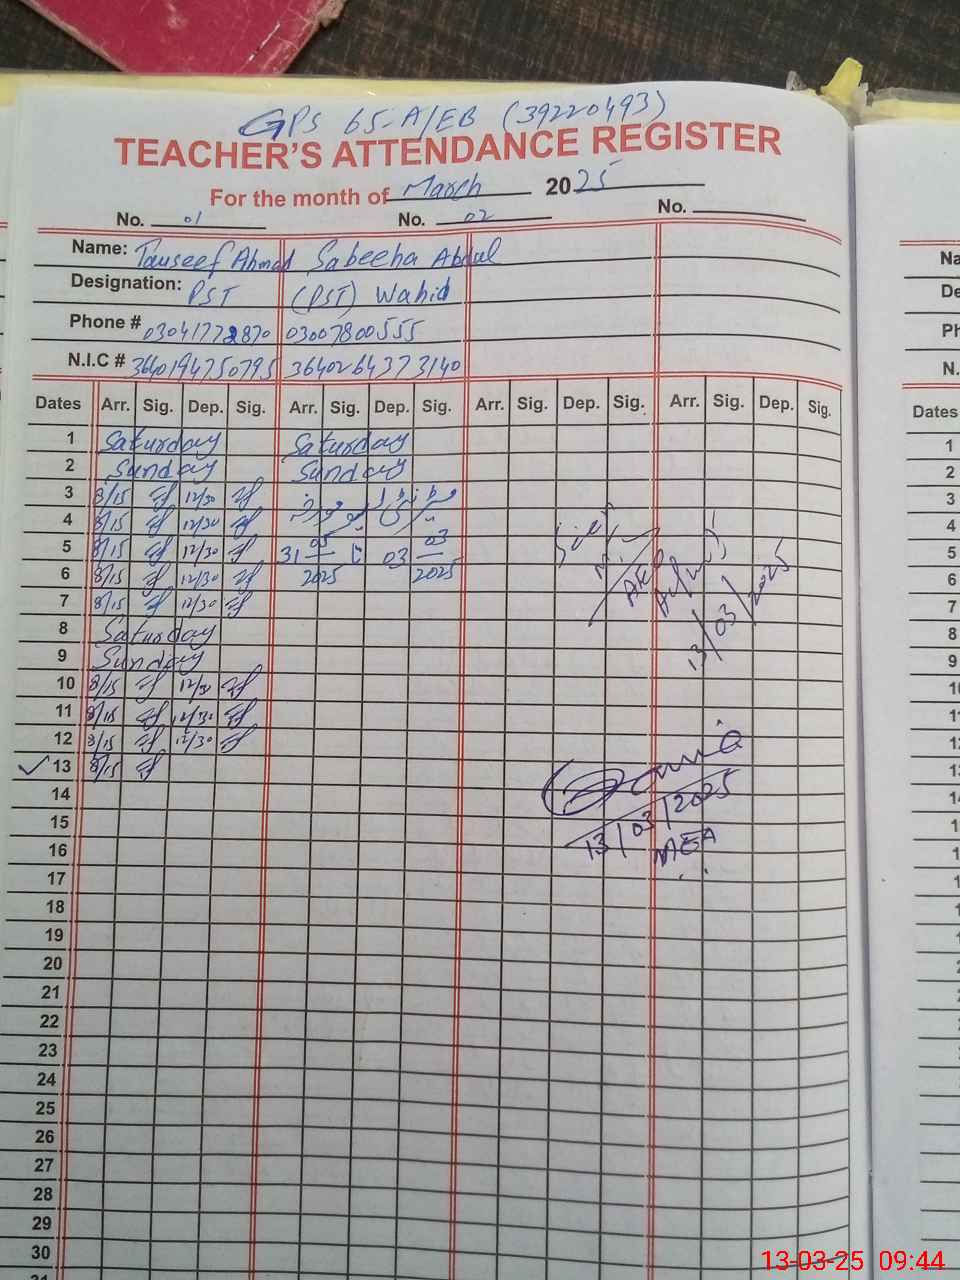 GPS 65-A/EB (39220493)
TEACHER'S ATTENDANCE REGISTER
For the month of March 2025
No. 01 No. 02 No.
Name: Tauseef Ahmad Sabeeha Abdul
Designation: PST (PST) Wahid
Phone # 03041772870 03007800555
N.I.C # 3640194750795 3640264373140
Dates Arr. Sig. Dep. Sig. Arr. Sig. Dep. Sig. Arr. Sig. Dep. Sig. Arr. Sig. Dep. Sig.
1 Saturday Saturday
2 Sunday Sunday
3 8/15 12/30
4 8/15 12/30
5 8/15 12/30 31 05 2025 تا 03 03 2025
6 8/15 12/30
7 8/15 12/30
8 Saturday
9 Sunday
10 8/15 12/30
11 8/15 12/30
12 8/15 12/30
13 8/15
14
15
16
17
18
19
20
21
22
23
24
25
26
27
28
29
30
31
13/03/2025
13/03/2025
MEA
Na
De
Ph
N.
Dates
1
2
3
4
5
6
7
8
9
13-03-25 09:44